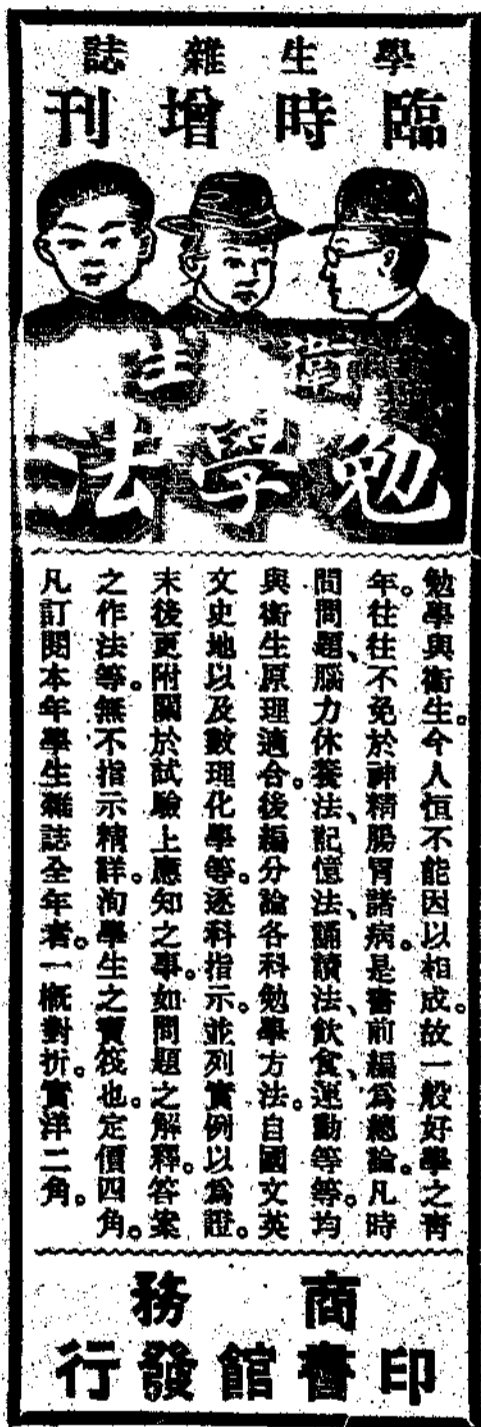 學生雜誌
臨時增刊
衛生
勉學法
勉學與衛生。今人恒不能因以相成。故一般好學之青
年。往往不免於神精腸胃諸病。是書前編爲總論。凡時
間問題、腦力休養法、記憶法、誦讀法、飲食、運動等等。均
與衛生原理適合。後編分論各科勉學方法。自國文英
文史地以及數理化學等。逐科指示。並列實例以爲證。
末後更附關於試驗上應知之事。如問題之解釋。答案
之作法等。無不指示精詳。洵學生之寶筏也。定價四角。
凡訂閱本年學生雜誌全年者。一概對折。實洋二角。
商務
印書館發行